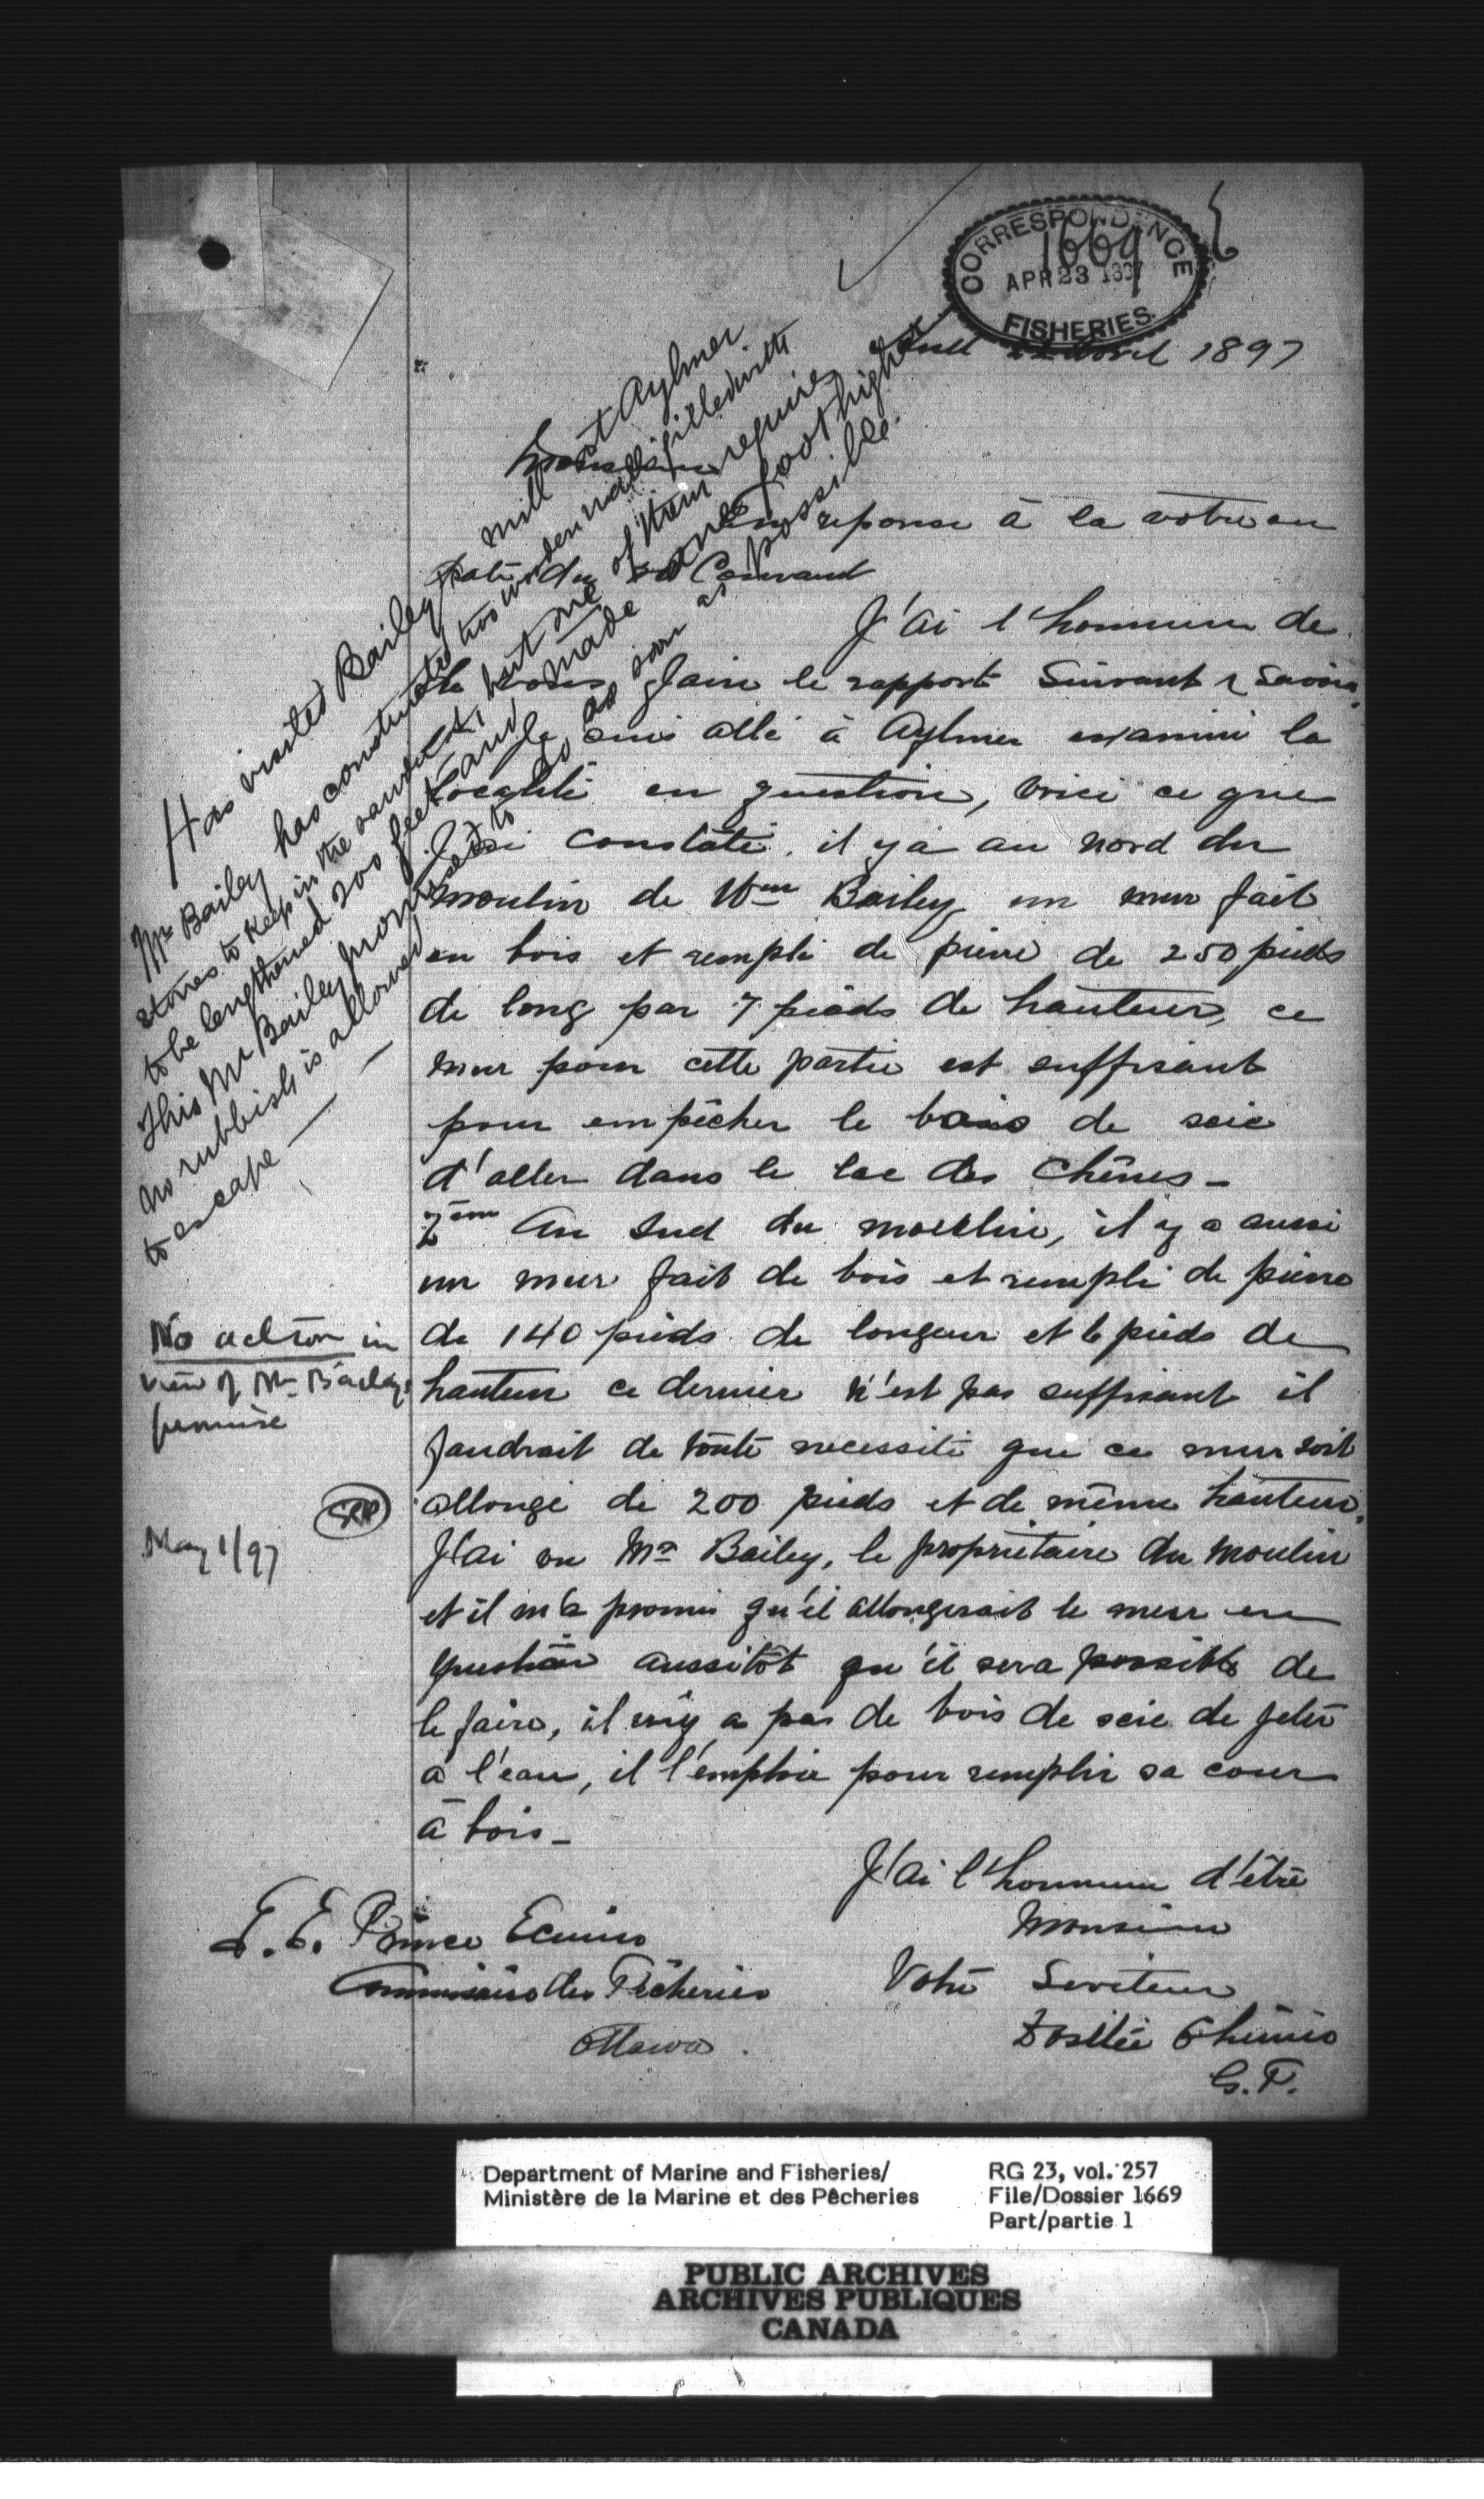 CORRESPONDENCE
1669
APR 23 1897
FISHERIES
Hull 22 Avril 1897
Monsieur
En reponse à la votre en
date du Courant
J'ai l'honneur de
vous faire le rapport Suivant Savoir
Je suis allé à Aylmer examiné la
localité en question, voici ce que
J'ai constaté. il y a au nord du
moulin de Wm Bailey un mur fait
en bois et rempli de pierre de 250 pieds
de long par 7 pieds de hauteur, ce
mur pour cette partie est suffisant
pour empêcher le bois de scie
d'aller dans le lac des Chênes -
2ème Au Sud du moulin, il y a aussi
un mur fait de bois et rempli de pierre
de 140 pieds de longeur et 6 pieds de
hauteur ce dernier n'est pas suffisant il
faudrait de toute necessité que ce mur soit
allongé de 200 pieds et de même hauteur.
J'ai vu Mr Bailey, le propriétaire du Moulin
et il m'a promis qu'il allongerait le mur en
question aussitôt qu'il sera possible de
le faire, il n'y a pas de bois de scie de jeté
à l'eau, il l'emploie pour remplir sa cour
à bois -
J'ai l'honneur d'être
Monsieur
Votre Serviteur
G. P.
E. E. Prince Ecuier
Commissaire des Pêcheries
Ottawa.
Has visited Bailey's mill at Aylmer
Mr Bailey has constructed two wooden walls filled with
stones to keep in the sawdust, but one of them requires
to be lengthened 200 feet and made one foot higher.
This Mr Bailey promised to do as soon as possible.
No rubbish is allowed
to escape —
No action in
view of Mr Bailey's
promise
May 1/97
Department of Marine and Fisheries/
Ministère de la Marine et des Pêcheries
RG 23, vol. 257
File/Dossier 1669
Part/partie 1
PUBLIC ARCHIVES
ARCHIVES PUBLIQUES
CANADA